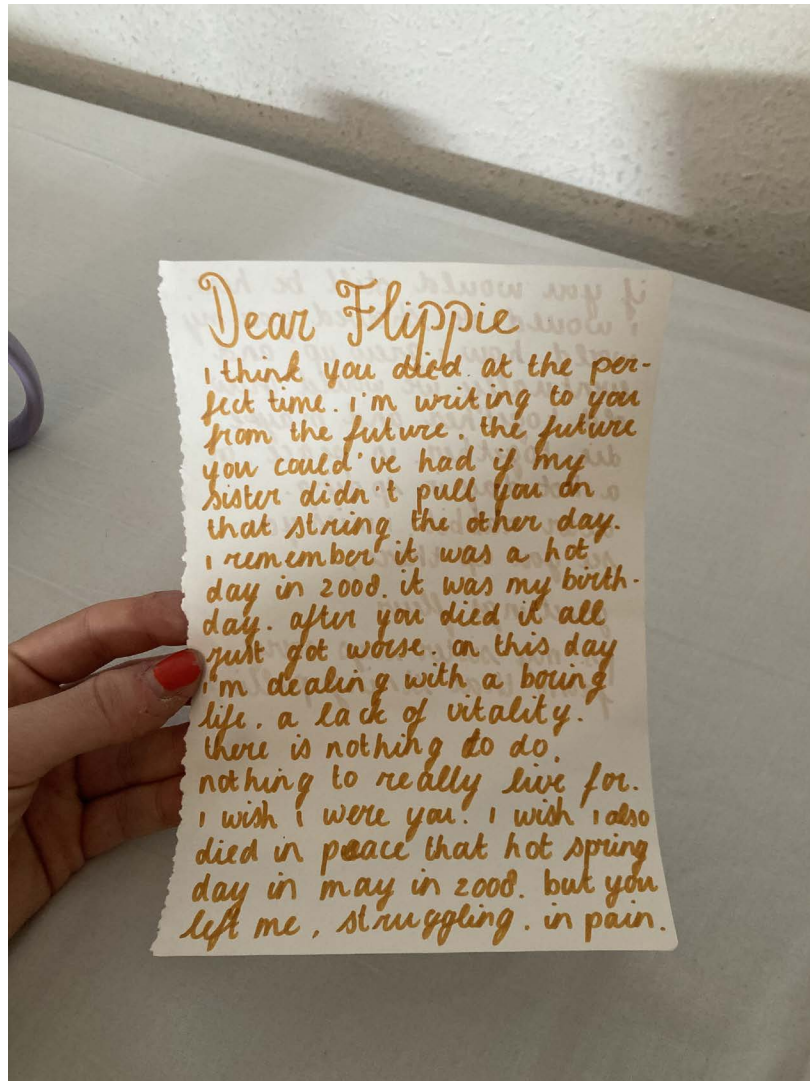 Dear Flippie
i think you died at the per-
fect time. i'm writing to you
from the future. the future
you could've had if my
sister didn't pull you on
that string the other day.
i remember it was a hot
day in 2008. it was my birth-
day. after you died it all
just got worse. on this day
i'm dealing with a boring
life. a lack of vitality.
there is nothing to do,
nothing to really live for.
i wish i were you. i wish i also
died in peace that hot spring
day in may in 2008. but you
left me, struggling. in pain.